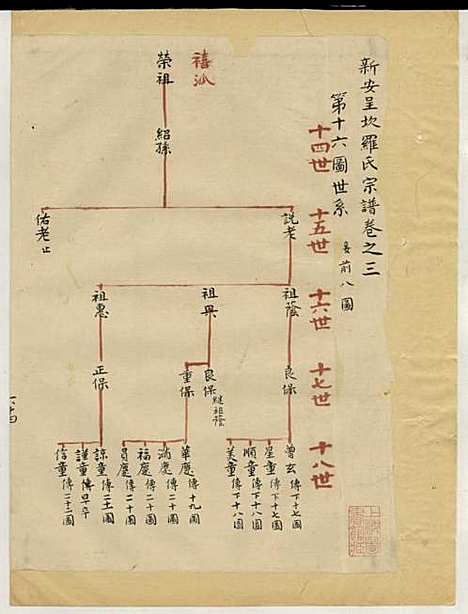 新安呈坎羅氏宗譜卷之三
第十六圖世系
前八圖
十四世
十五世
十六世
十七世
十八世
榮祖
紹孫
説老
佑老止
祖蔭
祖興
祖惠
良保
良保繼祖蔭
重保
正保
曾玄傳下十七圖
星童傳下十七圖
順童傳下十八圖
美童傳下十八圖
華慶傳十九圖
滿慶傳二十圖
福慶傳二十圖
員慶傳二十圖
諒童傳二十一圖
謹童傳早卒
信童傳二十二圖